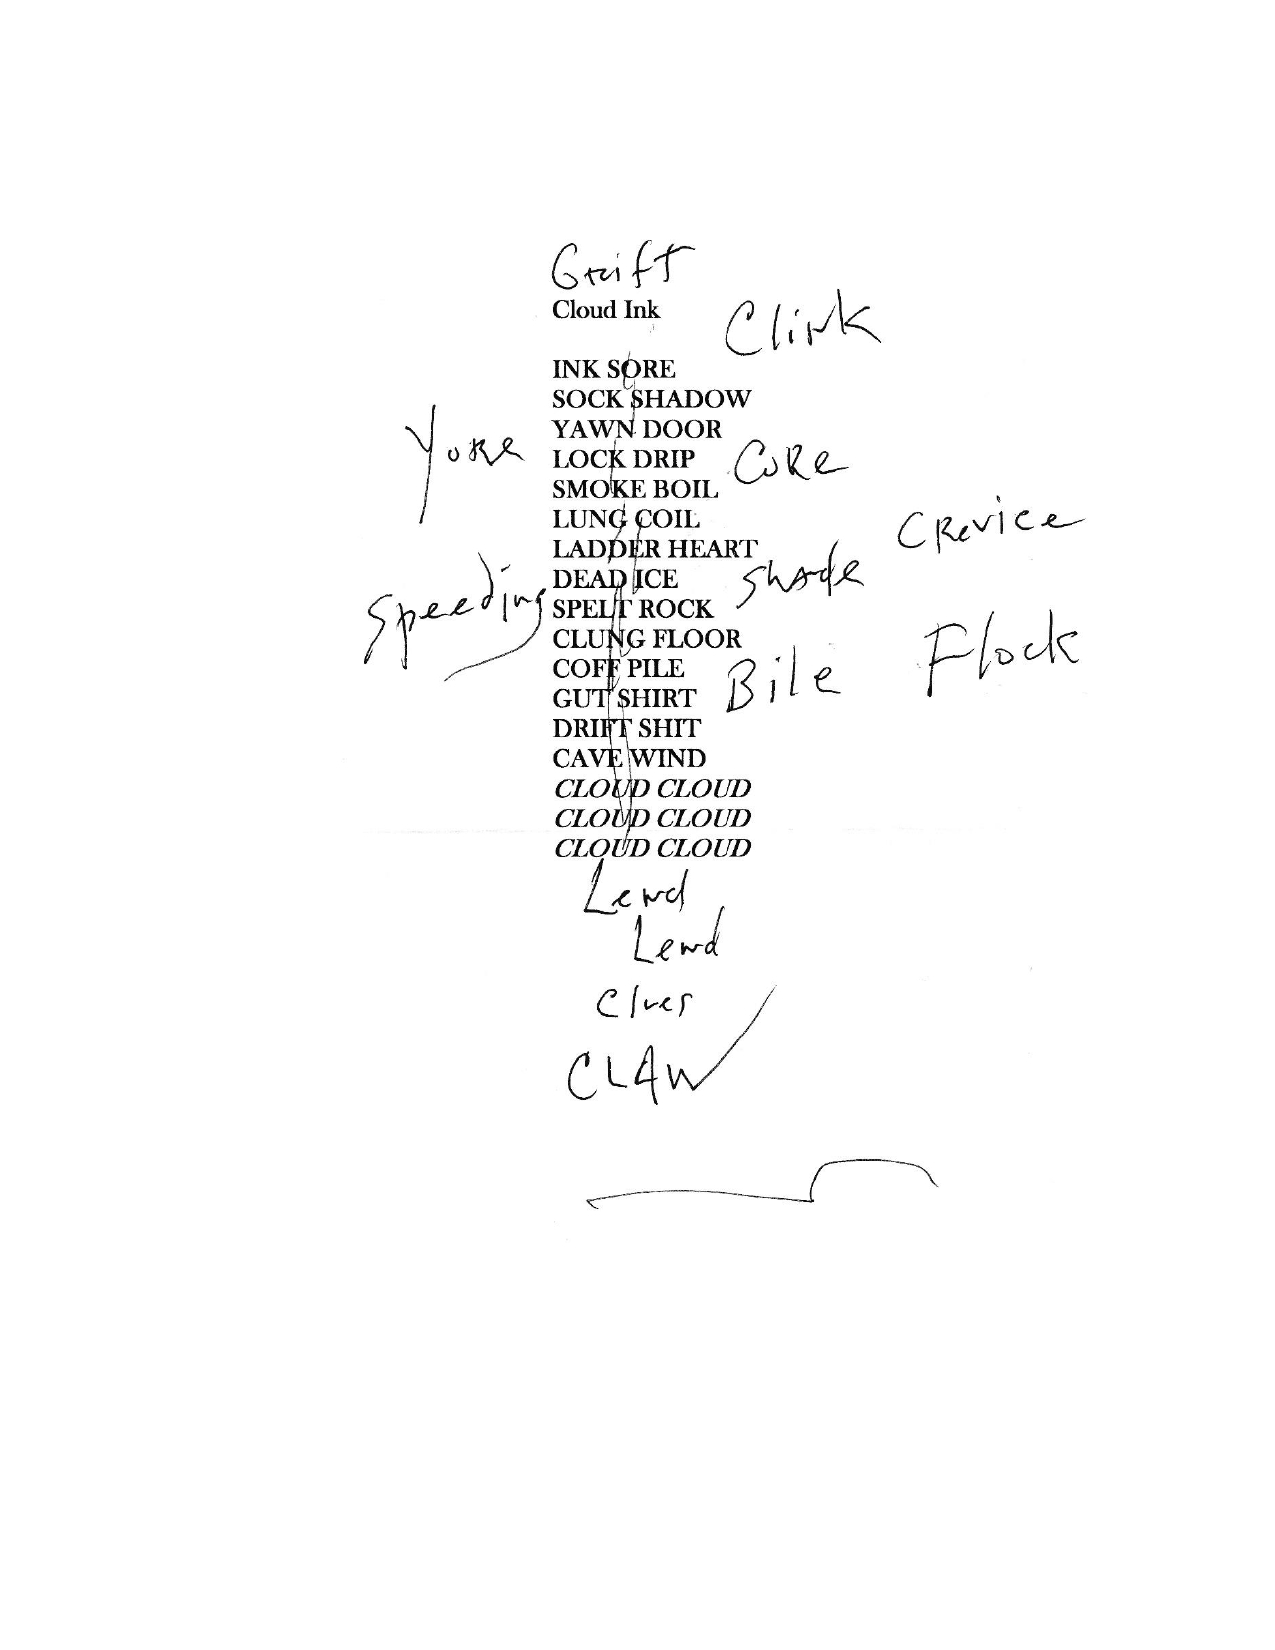 Grift
Cloud Ink
Clink
INK SORE
SOCK SHADOW
YAWN DOOR
Yore
LOCK DRIP
Core
SMOKE BOIL
LUNG COIL
Crevice
LADDER HEART
DEAD ICE
Shade
Speeding
SPELT ROCK
CLUNG FLOOR
Flock
COFF PILE
Bile
GUT SHIRT
DRIFT SHIT
CAVE WIND
CLOUD CLOUD
CLOUD CLOUD
CLOUD CLOUD
Lewd
Lewd
Clues
CLAW